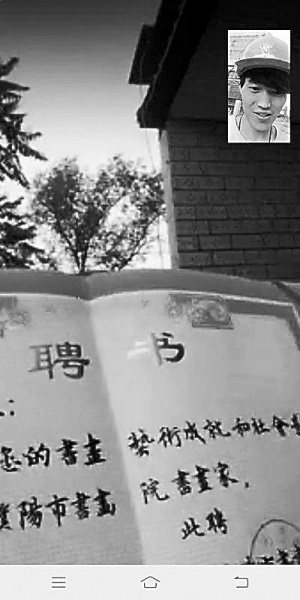 聘书
您的書畫藝術成就和社會
陽市書畫院書畫家.
此聘